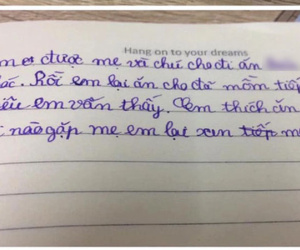 Hang on to your dreams
được mẹ và chú cho đi ăn
Rồi em lại ăn cho đã mồm tiếp
em vẫn thấy. Em thích ăn
nào gặp mẹ em lại xin tiếp